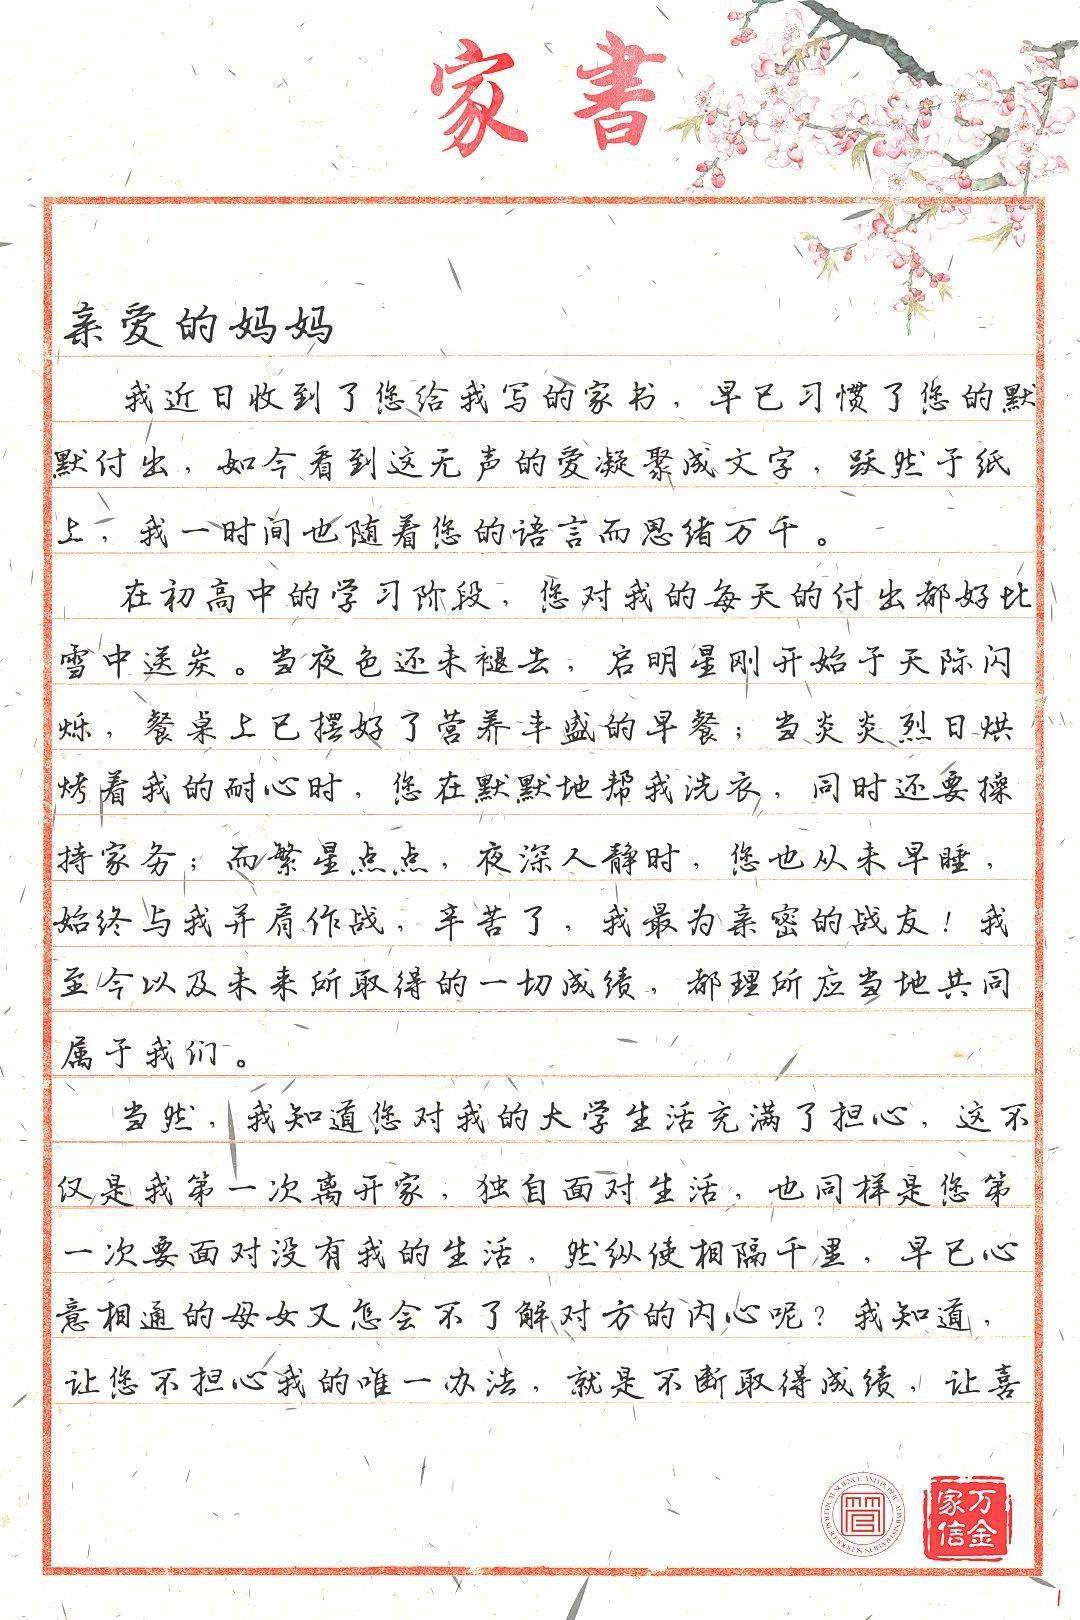 家書
亲爱的妈妈
我近日收到了您给我写的家书，早已习惯了您的默
默付出，如今看到这无声的爱凝聚成文字，跃然于纸
上，我一时间也随着您的语言而思绪万千。
在初高中的学习阶段，您对我的每天的付出都好比
雪中送炭。当夜色还未褪去，启明星刚开始于天际闪
烁，餐桌上已摆好了营养丰盛的早餐；当炎炎烈日烘
烤着我的耐心时，您在默默地帮我洗衣，同时还要操
持家务；而繁星点点，夜深人静时，您也从未早睡，
始终与我并肩作战，辛苦了，我最为亲密的战友！我
至今以及未来所取得的一切成绩，都理所应当地共同
属于我们。
当然，我知道您对我的大学生活充满了担心，这不
仅是我第一次离开家，独自面对生活，也同样是您第
一次要面对没有我的生活，然纵使相隔千里，早已心
意相通的母女又怎会不了解对方的内心呢？我知道，
让您不担心我的唯一办法，就是不断取得成绩，让喜
万金
家信
1